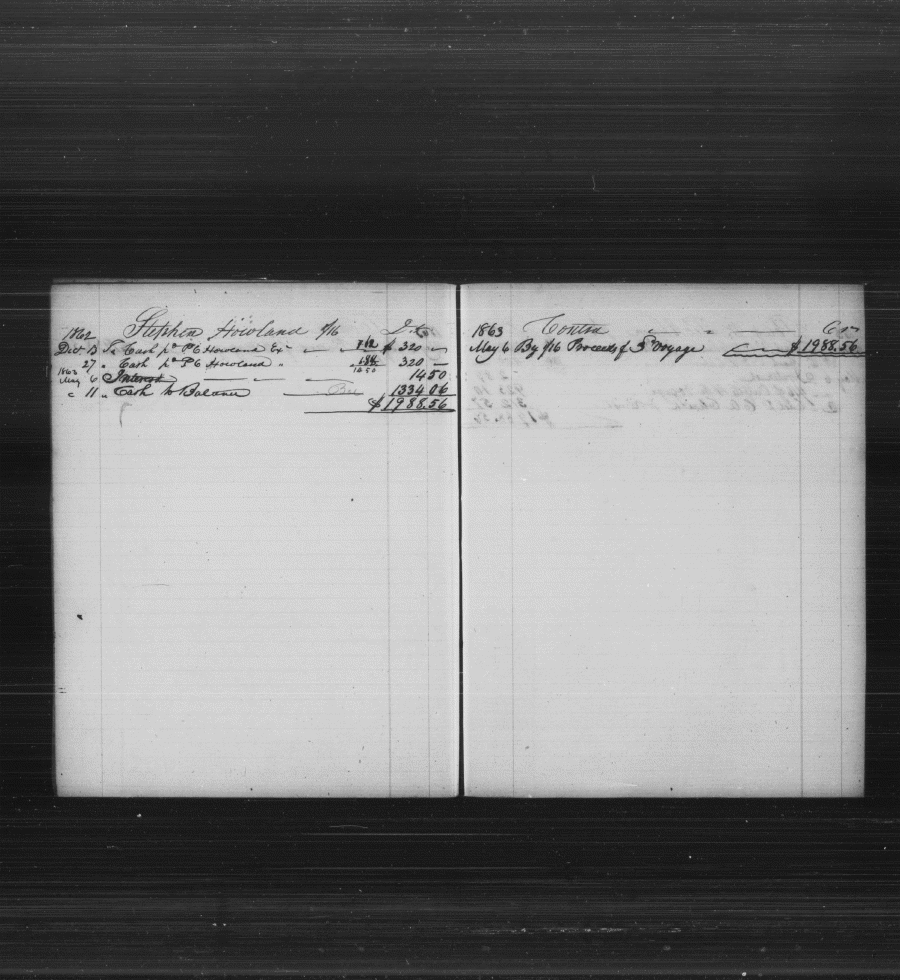 Stephen Howland 1/16 Dr
1862
Dec 13 To Cash pd P G Howland Ex $ 320
27 " Cash pd P G Howland " 320
1863
May 6 Interest 14 50
" 11 " Cash to Balance 1334 06
$ 1988.56
1863 Contra Cr
May 6 By 1/16 Proceeds of 3d Voyage $ 1988.56